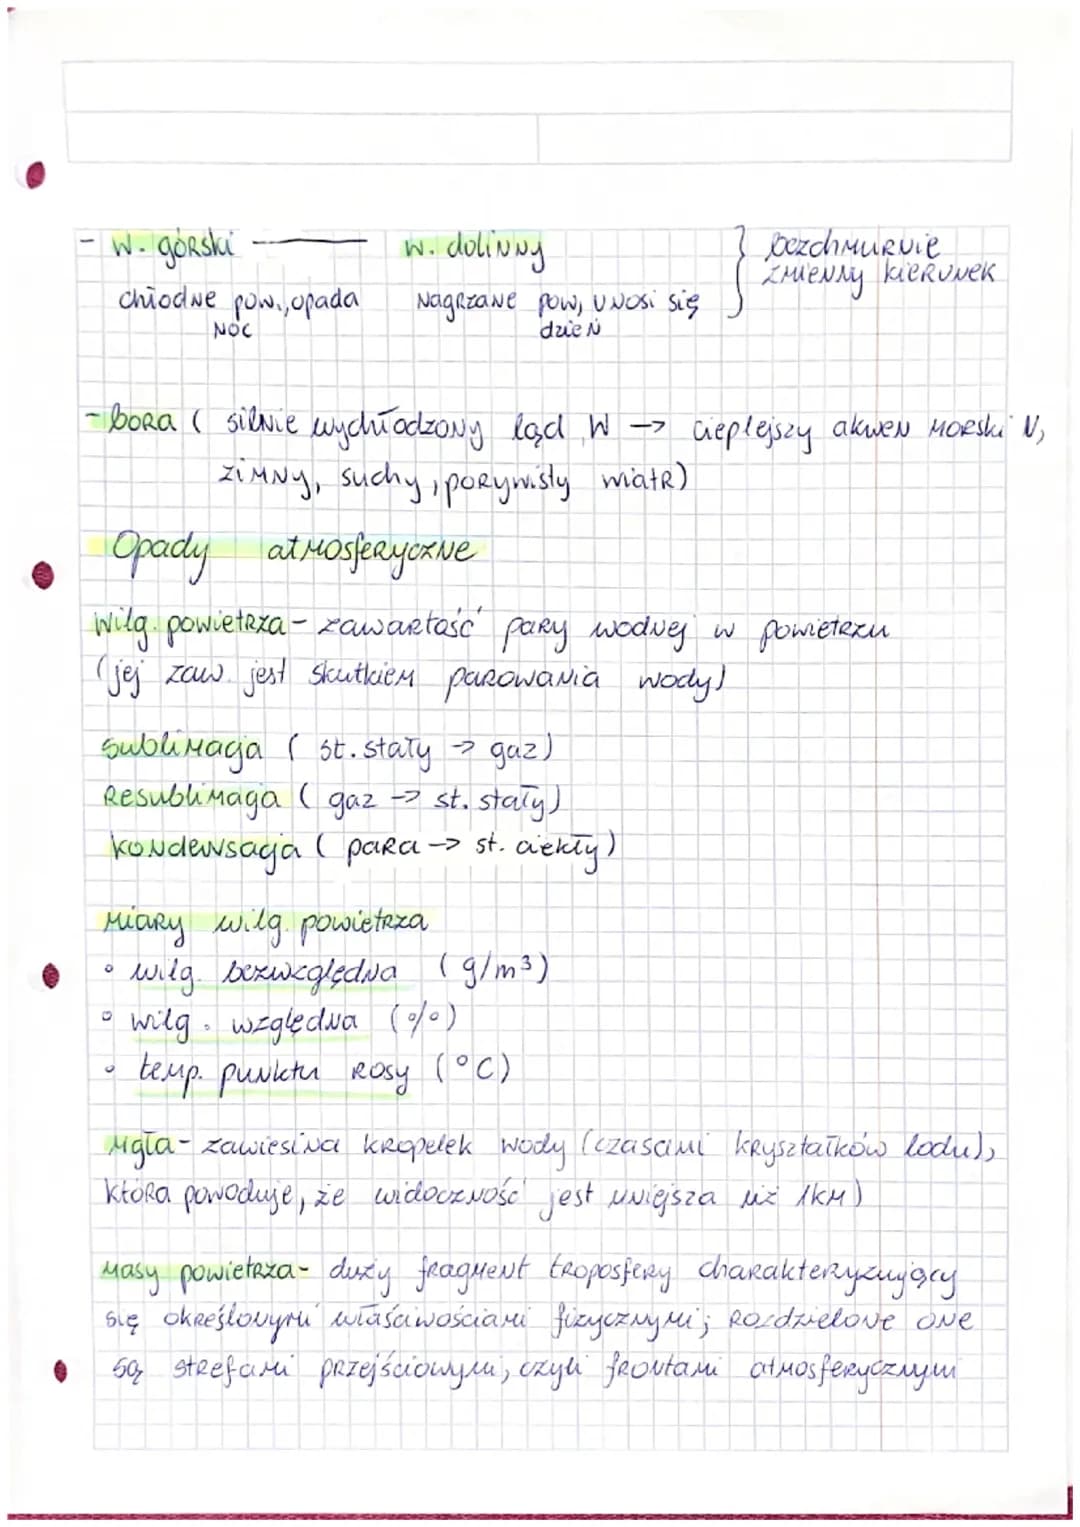 - w. górski — w. dolinny } bezchmurnie
zmienny kierunek
chłodne pow., opada nagrzane pow, unosi się
noc dzień
- bora ( silnie wychłodzony ląd W → cieplejszy akwen morski N,
zimny, suchy, porywisty wiatr)
Opady atmosferyczne
wilg. powietrza - zawartość pary wodnej w powietrzu
(jej zaw. jest skutkiem parowania wody)
sublimacja ( st. stały → gaz)
Resublimacja ( gaz → st. stały)
kondensacja ( para → st. ciekły)
miary wilg. powietrza
° wilg. bezwzględna (g/m³)
° wilg. względna (%)
° temp. punktu rosy (°C)
mgła - zawiesina kropelek wody (czasami kryształków lodu),
która powoduje, że widoczność jest mniejsza niż 1km)
masy powietrza - duży fragment troposfery charakteryzujący
się określonymi właściwościami fizycznymi; rozdzielone one
są strefami przejściowymi, czyli frontami atmosferycznymi